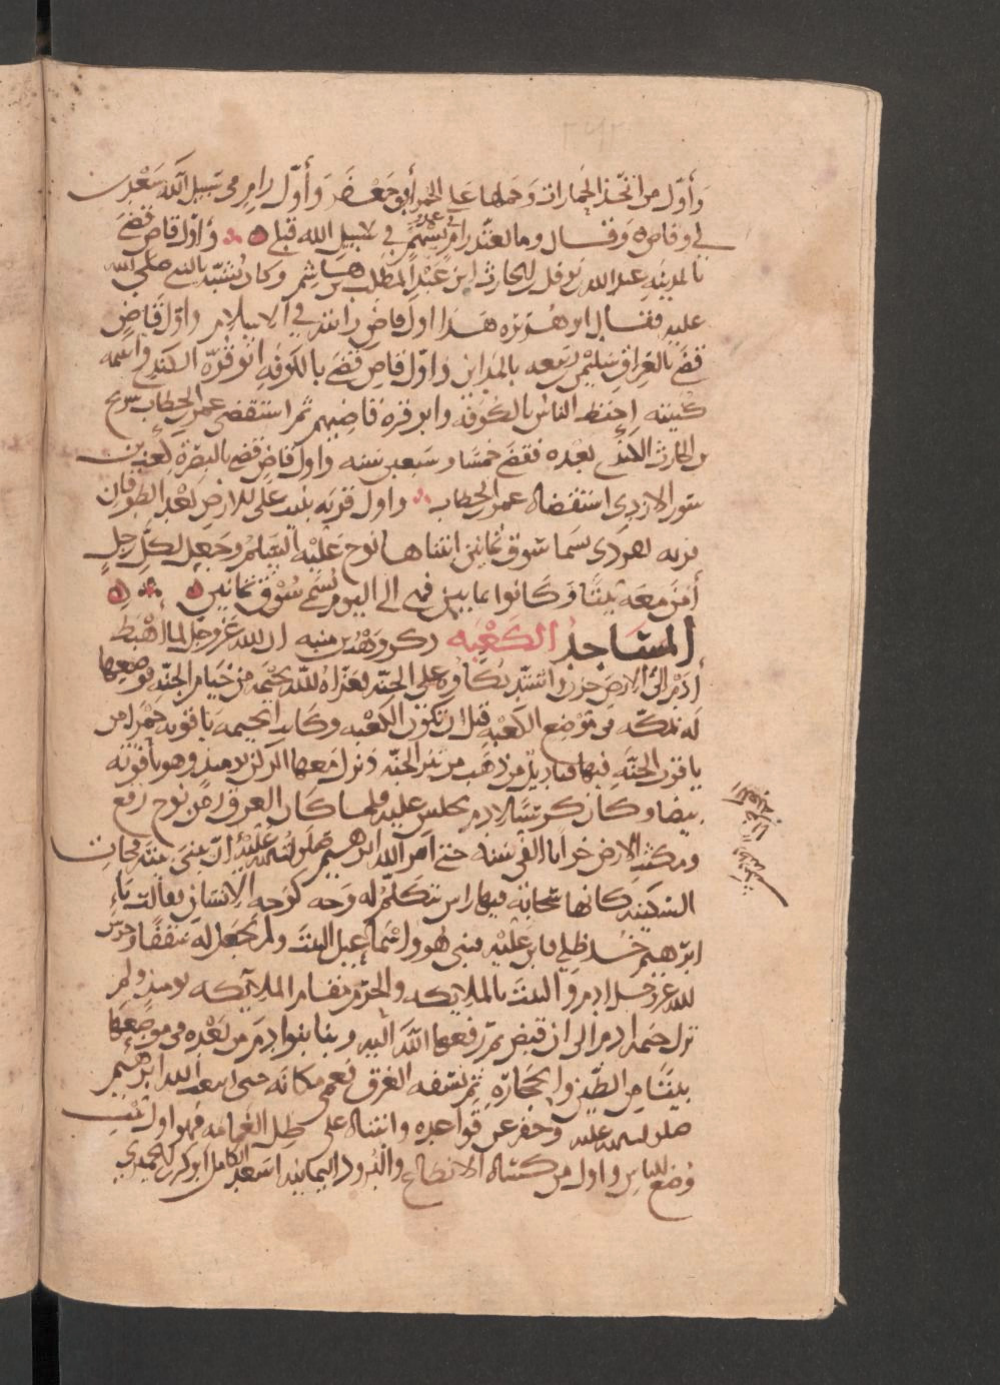 وأول من اتخذ الجمازات وحملها على الحمر أبو جعفر وأول رام رمى بسبيل الله سعد بن
أبي وقاص وقال وما يعتد رام في عدو بسهم في سبيل الله قبلي وأول قاض قضى
بالمدينه عبد الله نوفل بن الحارث ابن عبد المطلب بن هاشم وكان يشبه بالنبي صلى الله
عليه فقال ابو هريره هذا اول قاض رايته في الاسلام وأول قاض
قضى بالعراق سليمن بن ربيعه بالمداين وأول قاض قضى بالكوفه ابو قرة الكندي واسمه
كنيته اختط الناس بالكوفه وابو قرة قاضيهم ثم استقضى عمر بن الخطاب شريح
بن الحارث الكندي بعده فقضى خمسا وسبعين سنه واول قاض قضى بالبصرة كعب بن
سور الازدي استقضاه عمر بن الخطاب واول قريه بنيت على الارض بعد الطوفان
قريه بقردى تسما سوق ثمانين ابتناها نوح عليه السلم وجعل لكل رجل
أمن معه بيتا وكانوا ثمانين فهي الى اليوم تسمى سوق ثمانين
المساجد الكعبه ذكر وهب بن منبه ان الله عز وجل لما اهبط
أدم الى الارض حزن واشتد بكاؤه على الجنه فعزاه الله بخيمه من خيام الجنه فوضعها
له بمكه في موضع الكعبه قبل ان تكون الكعبه وكانت الخيمه ياقوته حمرا من
ياقوت الجنه فيها قناديل من ذهب من تبر الجنه ونزل معها الركن يوميذ وهو ياقوته
بيضا وكان كرسيا لادم يجلس عليه فلما كان الغرق زمن نوح رفع
ومكثت الارض خرابا الفي سنه حتى امر الله ابرهيم صلوات الله عليه ان يبني بيته فجات
السكينه كانها سحابه فيها راس تتكلم له وجه كوجه الانسان فقالت يا
ابرهيم خذ ظلي فابن عليه فبنى هو واسماعيل البيت ولم يجعل له سقفا وحرس
الله عز وجل ادم والبيت بالملائكه والحرم مقام الملائكه يوميذ ولم
تزل خيمه ادم الى ان قبض ثم رفعها الله اليه وبنا بنوا ادم من بعده في موضعها
بيتا من الطين والحجاره ثم نسفه الغرق فعمي مكانه حتى ابتعث الله ابرهيم
صلوات الله عليه وحفر عن قواعده وابتناه على ظل الغمامه فهو اول بيت
وضع للناس واول من كساه الانطاع والبرود اليمانيه اسعد الكامل ابو كرب الحميري